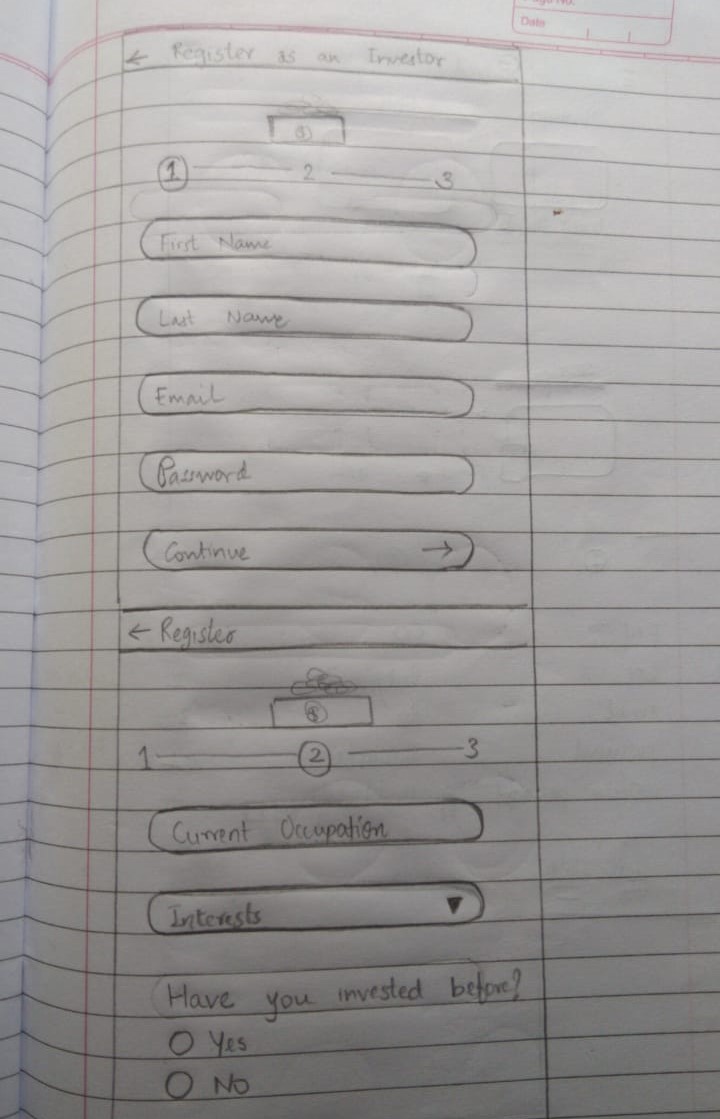 Page No.
Date
← Register as an Investor
$
1 2 3
First Name
Last Name
Email
Password
Continue →
← Register
$
1 2 3
Current Occupation
Interests ▼
Have you invested before?
Yes
No